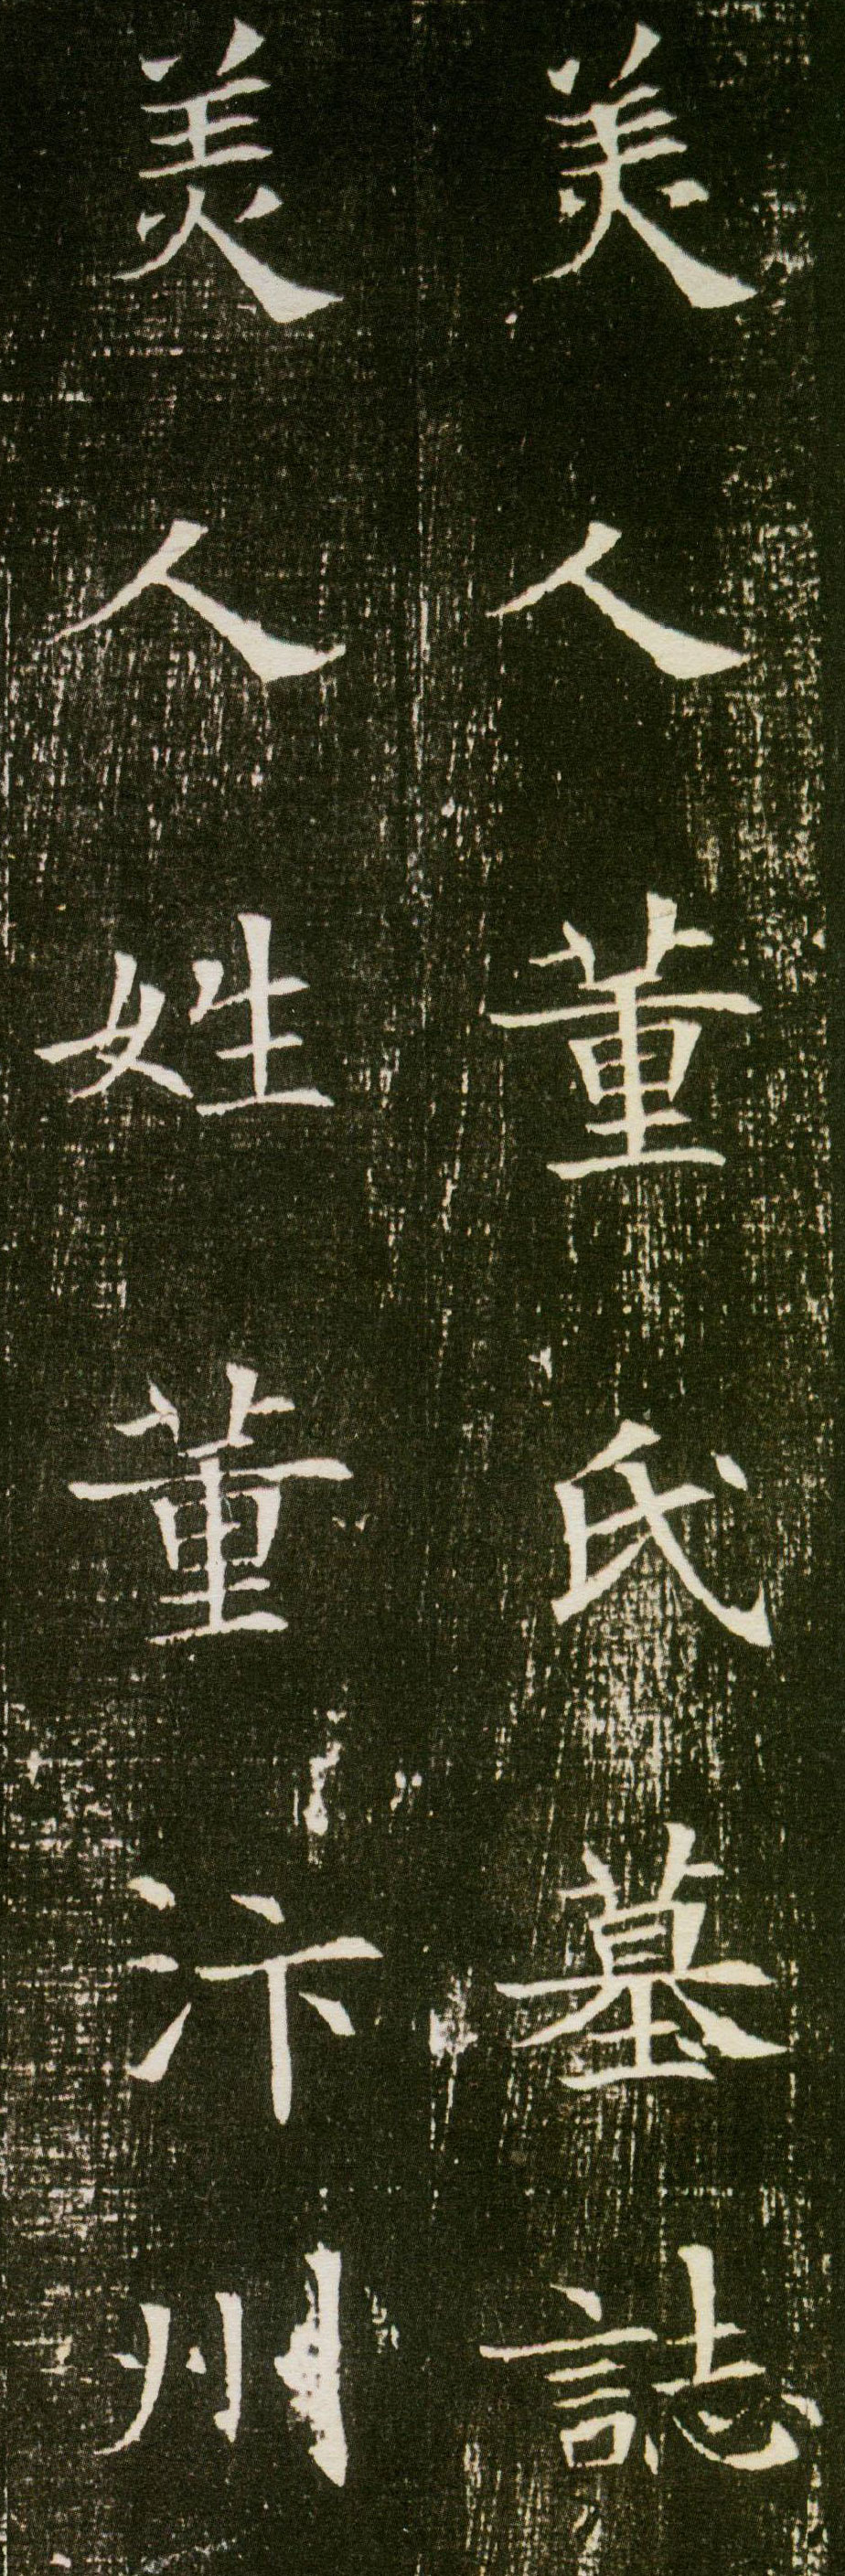 美人董氏墓誌
美人姓董汴州